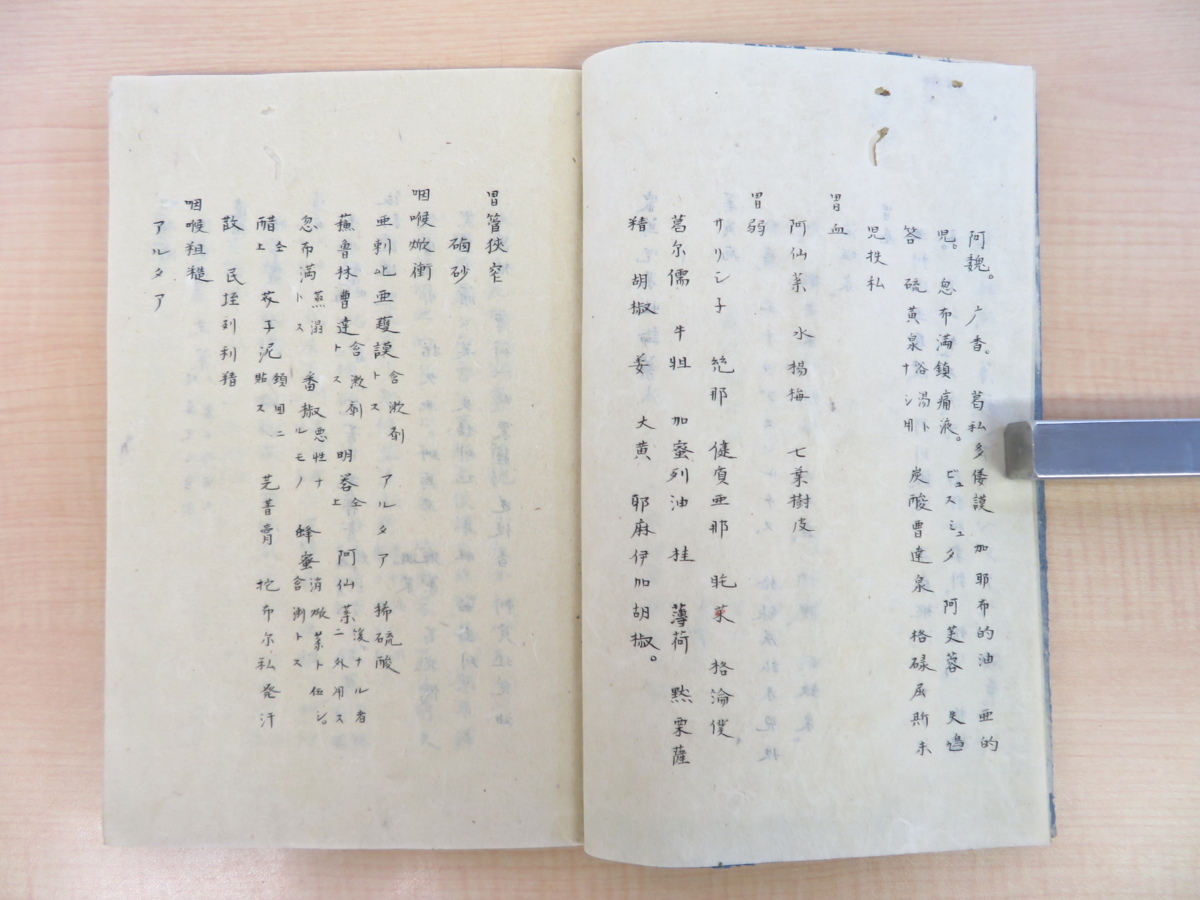 阿魏。广香。葛私多倭謨 加耶布的油 亜的
児。忽布満鎮痛液。ビュスシュタ 阿芙蓉 失鳩
答 硫黄泉浴湯トナシ用 炭酸曹達泉 格碌屈斯末
児扶私
胃血
阿仙薬 水楊梅 七葉樹皮
胃弱
サリシ子 規那 健質亜那 吒菓 格淪僕
葛尔儒 牛胆 加蜜列油 桂 薄荷 黙栗薩
精 胡椒 姜 大黄 耶麻伊加胡椒。
胃管狭窄
硇砂
咽喉焮衝
亜剌比亜護謨含漱剤トス アルタア 稀硫酸
蕪魯林曹達含漱剤トス 明礬仝上 阿仙薬後ナル者ニ外用ス
忽布満蒸溻トス 番椒悪性ナルモノ 蜂蜜消焮薬ト伍シ含漱トス
醋仝上 芥子泥頸囲ニ貼ス 芫菁膏 抱布尔私発汗
散 民垤列利精
咽喉粗糙
アルタア